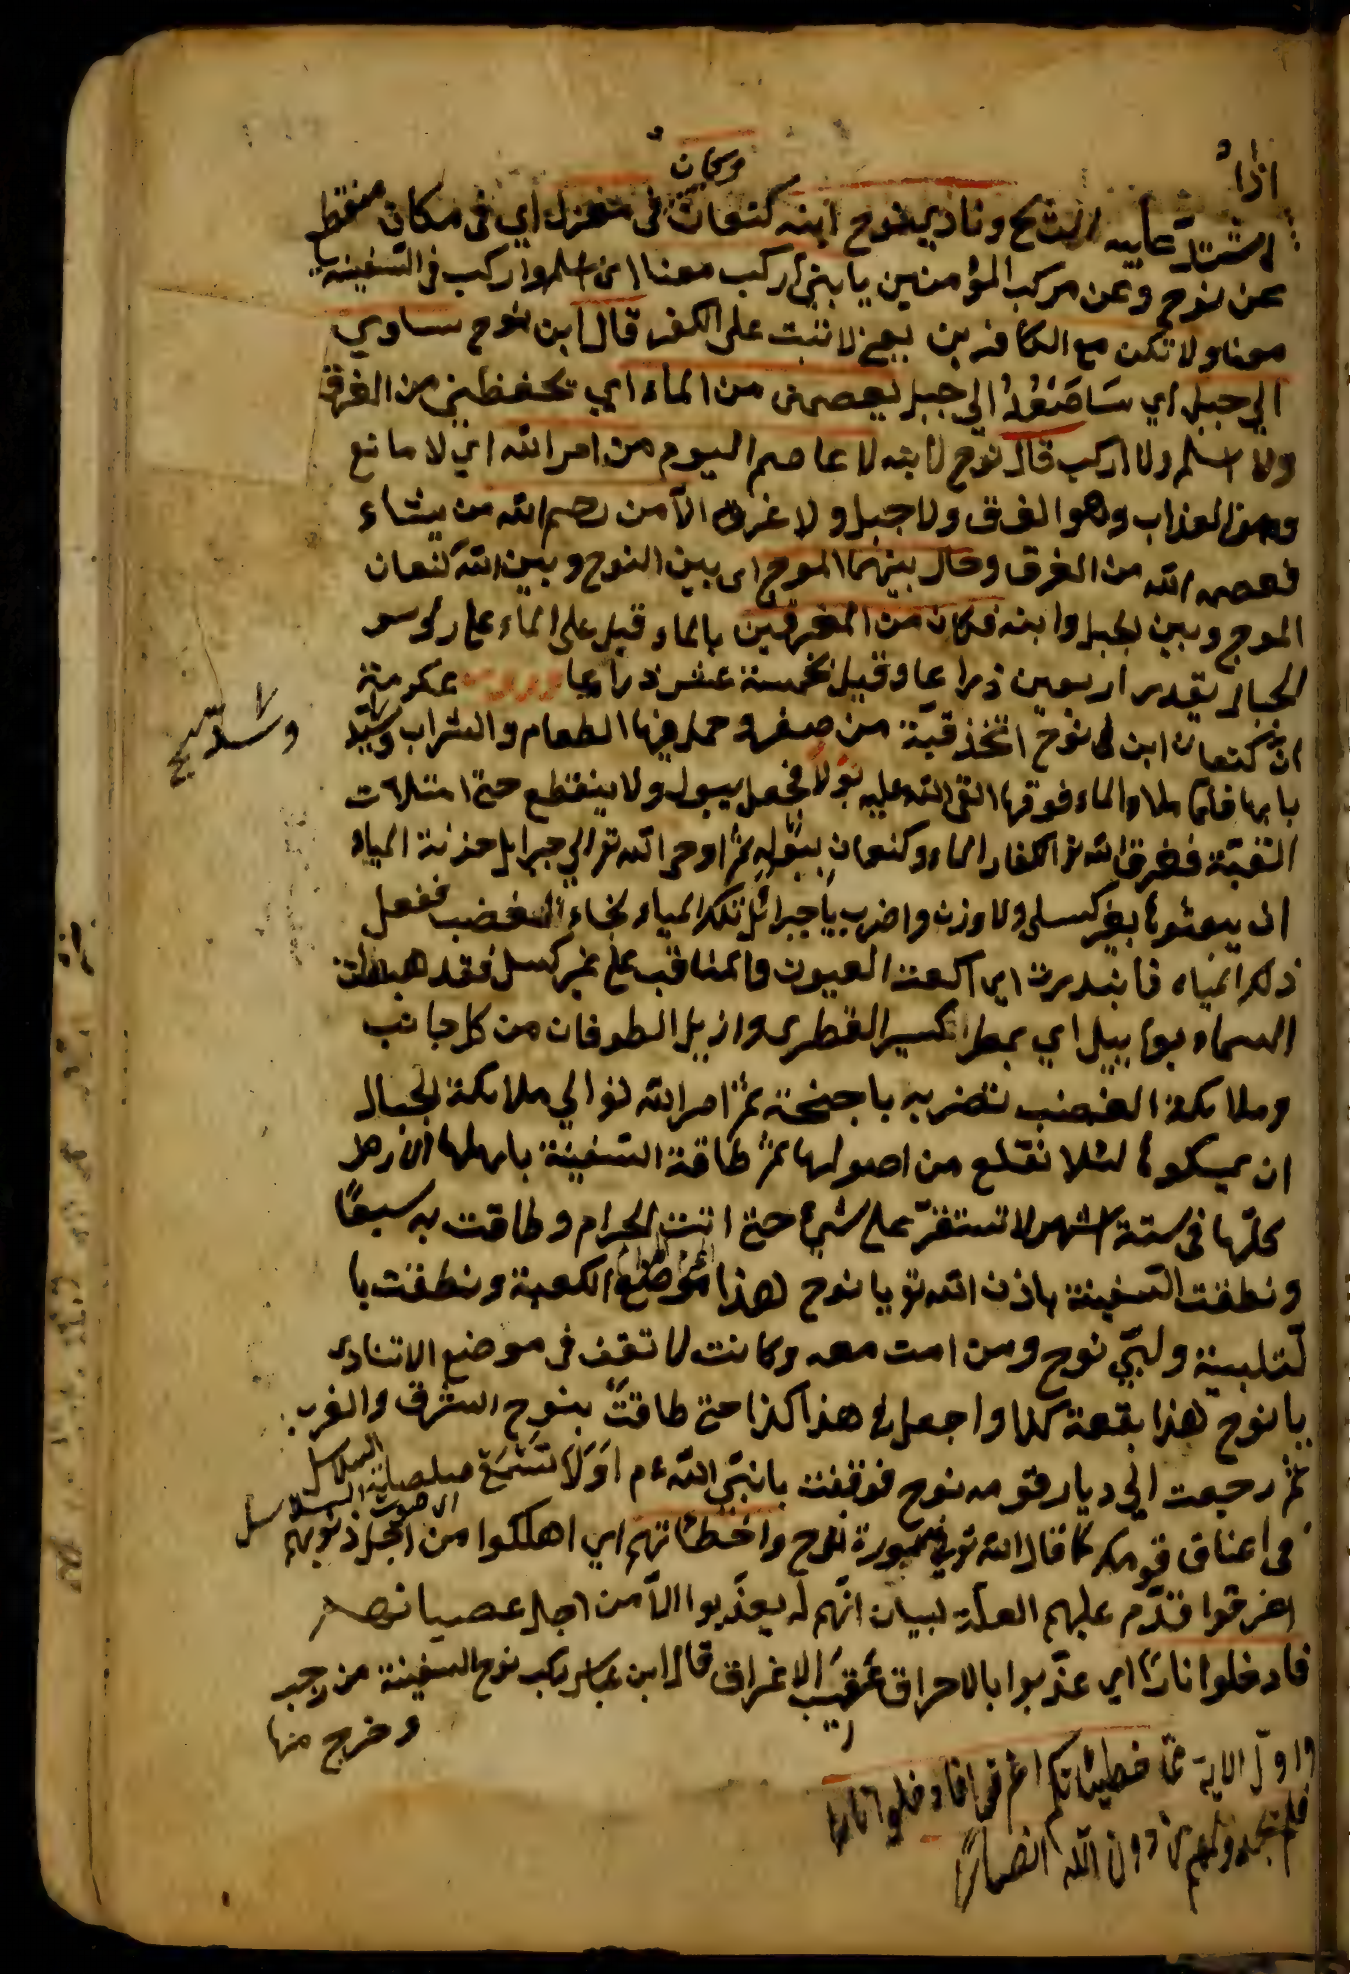 اذا
وكان
اشتد عليه الريح ونادى نوح ابنه كنعان في معزل اي في مكان منقطع
عن نوح وعن مركب المؤمنين يا بني اركب معنا اي اسلم واركب في السفينة
معنا ولا تكن مع الكافرين يعني لا تثبت على الكفر قال ابن نوح ساوي
الي جبل اي ساصعد الي جبل يعصمني من الماء اي يحفظني من الغرق
ولا اسلم ولا اركب قال نوح لابنه لا عاصم اليوم من امر الله اي لا مانع
من العذاب وهو الغرق ولا جبل ولا غرق الا من رحم الله من يشاء
فعصمه الله من الغرق وحال بينهما الموج اي بين النوح وبين ابنه كنعان
الموج وبين الجبل وابنه فكان من المغرقين بالماء قيل على الماء على رؤس
الجبال بقدر اربعين ذراعا وقيل بخمسة عشر ذراعا وروي عكرمة
ان كنعان ابن نوح اتخذ قبة من صفر وحمل فيها الطعام والشراب وشد
بابها فلما علا والماء فوقها القى الله عليه بولا فجعل يبول ولا ينقطع حتى امتلات
القبة فغرق الله تع الكفار الماء وكنعان ببوله ثم اوحى الله تع الي جبرايل خزنة المياه
ان يبعثوها بغير كيل ولا وزن واضرب يا جبرائيل تلك المياه بجناح الغضب ففعل
ذلك المياه فانبدرت اي العيون والمناقب على غير كيل فقد هبطت
السماء بوابيل اي بمطر الكسير القطرى وازيل الطوفان من كل جانب
وملائكة الغضب تضربه باجنحة ثم امر الله تع الي ملائكة الجبال
ان يمسكوها لئلا تقلع من اصولها ثم طافة السفينة باهلها الارض
كلها في ستة اشهر لا تستقر على شيء حتى اتت الحرام وطافت به سبعا
ونطقت السفينة باذن الله تع يا نوح هذا موضع الكعبة ونطقت با
لتلبية ولبي نوح ومن امن معه وكانت لا تقف في موضع الا تنادى
يا نوح هذا بقعة كذا واجعل هذا كذا حتى طافت بنوح الشرق والغرب
ثم رجعت الي ديار قومه نوح فوقفت يا نبي الله ع م اولا تسمع صلصلة السلاسل
اي صوت السلاسل
في اعناق قومك كما قال الله تع في سورة نوح واخطئاتهم اي اهلكوا من اجل ذنوبهم
اغرقوا فقدم عليهم العلة لبيان انهم لم يعذبوا الا من اجل عصيانهم
فادخلوا نارا اي عذبوا بالاحراق عقيب الاغراق قال ابن عباس ركب نوح السفينة من رجب
وخرج منها
واول الاية مما خطيئاتكم اغرقوا فادخلوا نارا
فلم يجدوا لهم من دون الله انصارا